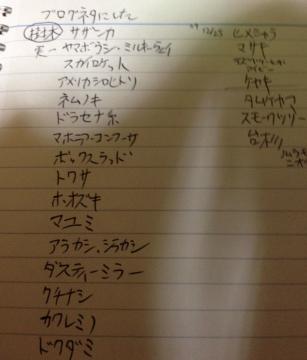 ブログネタにしてた
樹木 サザンカ
ヤマボウシ・ミルキーウェイ
スカイロケット
アメリカシロヒトリ
ネムノキ
ドラセナ系
マホニアコンフューサ
ボックスウッド
トクサ
ホオズキ
マユミ
アラカシ、シラカシ
ダスティーミラー
クチナシ
カクレミノ
ドクダミ
12/25 ヒメシャラ
マサキ
ケヤキ
タムケヤマ
スモークツリー